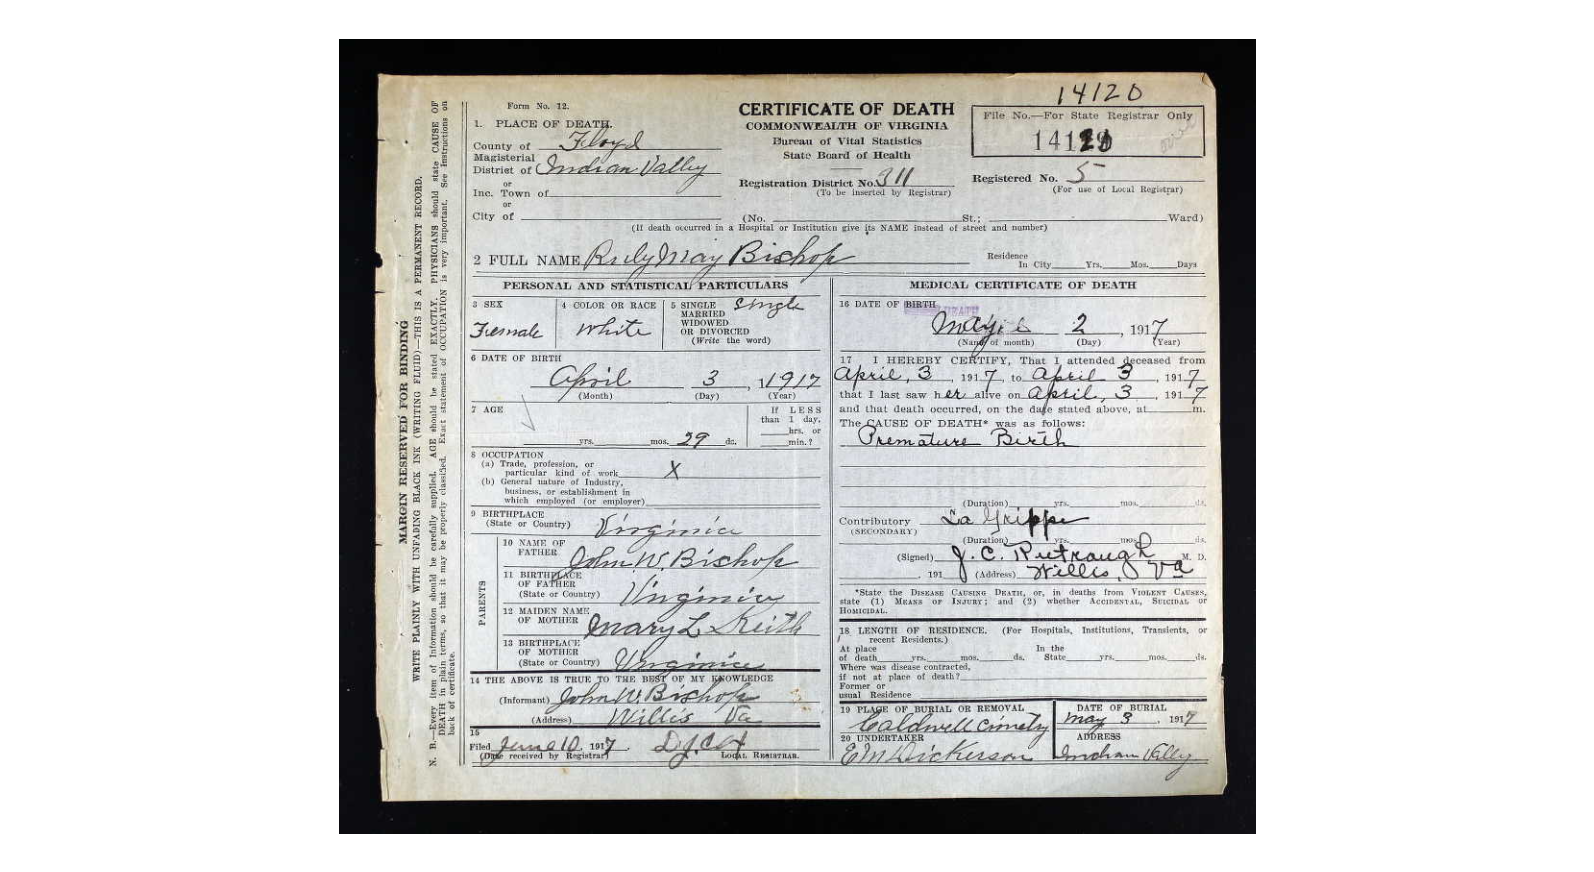 14120
Form No. 12.
CERTIFICATE OF DEATH
COMMONWEALTH OF VIRGINIA
Bureau of Vital Statistics
State Board of Health
File No.—For State Registrar Only
1. PLACE OF DEATH.
County of Floyd
Magisterial
District of Indian Valley
or
Inc. Town of
or
City of
Registration District No. 311
(To be inserted by Registrar)
Registered No. 5
(For use of Local Registrar)
(No. St.; Ward)
(If death occurred in a Hospital or Institution give its NAME instead of street and number)
2 FULL NAME Ruly May Bishop
Residence
In City Yrs. Mos. Days
PERSONAL AND STATISTICAL PARTICULARS
3 SEX
Female
4 COLOR OR RACE
White
5 SINGLE
MARRIED
WIDOWED
OR DIVORCED
(Write the word)
Single
6 DATE OF BIRTH
April 3, 1917
(Month) (Day) (Year)
7 AGE
yrs. mos. 29 ds.
If LESS
than 1 day,
hrs. or
min.?
8 OCCUPATION
(a) Trade, profession, or
particular kind of work X
(b) General nature of Industry,
business, or establishment in
which employed (or employer)
9 BIRTHPLACE
(State or Country) Virginia
PARENTS
10 NAME OF
FATHER John W. Bishop
11 BIRTHPLACE
OF FATHER
(State or Country) Virginia
12 MAIDEN NAME
OF MOTHER Mary L Keith
13 BIRTHPLACE
OF MOTHER
(State or Country) Virginia
14 THE ABOVE IS TRUE TO THE BEST OF MY KNOWLEDGE
(Informant) John W. Bishop
(Address) Willis Va
15
Filed June 10, 1917
(Date received by Registrar) LOCAL REGISTRAR.
MEDICAL CERTIFICATE OF DEATH
16 DATE OF BIRTH
DEATH
May 2, 1917
(Name of month) (Day) (Year)
17 I HEREBY CERTIFY, That I attended deceased from
April, 3, 1917, to April 3, 1917
that I last saw her alive on April, 3, 1917
and that death occurred, on the date stated above, at m.
The CAUSE OF DEATH* was as follows:
Premature Birth
(Duration) yrs. mos. ds.
Contributory La Grippe
(SECONDARY)
(Duration) yrs. mos. ds.
(Signed) J. C. M. D.
, 191 (Address) Willis, Va
*State the DISEASE CAUSING DEATH, or, in deaths from VIOLENT CAUSES,
state (1) MEANS OF INJURY; and (2) whether ACCIDENTAL, SUICIDAL or
HOMICIDAL.
18 LENGTH OF RESIDENCE. (For Hospitals, Institutions, Transients, or
recent Residents.)
At place In the
of death yrs. mos. ds. State yrs. mos. ds.
Where was disease contracted,
if not at place of death?
Former or
usual Residence
19 PLACE OF BURIAL OR REMOVAL
Caldwell Cimety
DATE OF BURIAL
May 3, 1917
20 UNDERTAKER
E M Dickerson
ADDRESS
Indian Vally
MARGIN RESERVED FOR BINDING
WRITE PLAINLY WITH UNFADING BLACK INK (WRITING FLUID)—THIS IS A PERMANENT RECORD.
N. B.—Every item of information should be carefully supplied. AGE should be stated EXACTLY. PHYSICIANS should state CAUSE OF
DEATH in plain terms, so that it may be properly classified. Exact statement of OCCUPATION is very important. See instructions on
back of certificate.